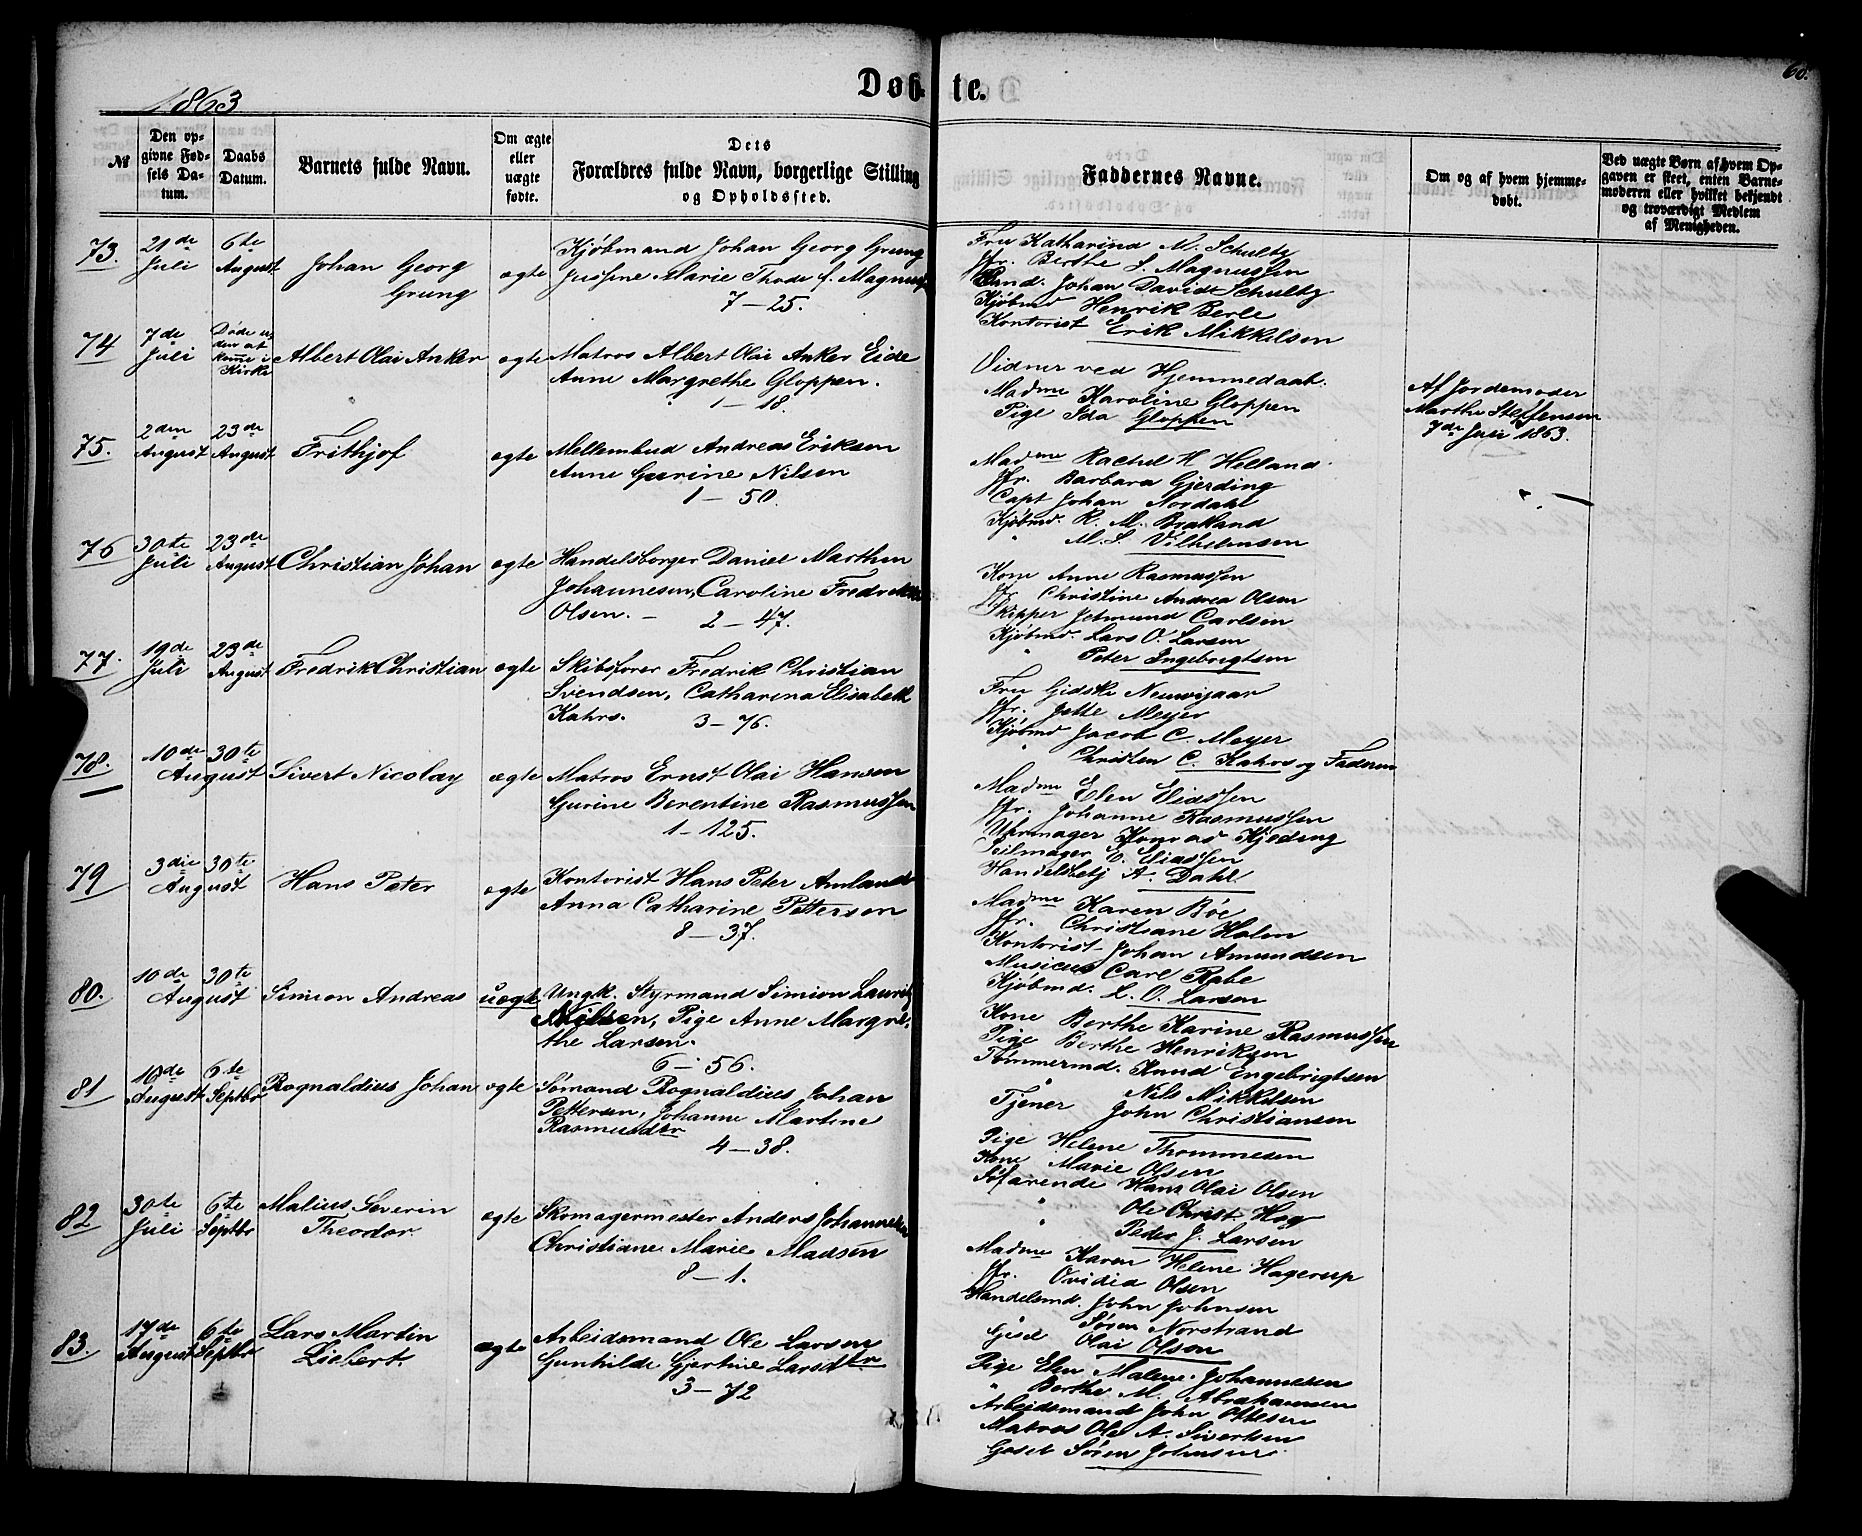 1863
Døbte.
60.
№
Den opgivne Fødsels Datum.
Daabs Datum.
Barnets fulde Navn.
Om ægte eller uægte fødte.
Dets Forældres fulde Navn, borgerlige Stilling og Opholdssted.
Faddernes Navne.
Om og af hvem hjemmedøbt.
Ved uægte Børn af hvem Opgaven er skeet, enten Barnemoderen eller hvilket bekjendt og troværdigt Medlem af Menigheden.
73.
21de Juli
6te August
Johan Georg
Grung
ægte
Kjøbmand Johan Georg Grung
Marie Thode f. Magnus
7 – 25.
Fru Katharina M. Schultz
Jfr. Berthe L. Magnussen
Johan David Schultz
Kjøbmd Henrik Berle
Kontorist Erik Mikkelsen
74
7de Juli
Døde uden at komme i Kirke
Albert Olai Anker
ægte
Matros Albert Olai Anker Eide
Anne Margrethe Gloppen.
1 – 18.
Vidner ved Hjemmedaab.
Madme Karoline Gloppen
Pige Ida Gloppen
Af Jordemoder
Marthe Steffensen
7de Juli 1863.
75.
2den August
23de August
Frithjof
ægte
Mellembud Andreas Eriksen
Anne Gurine Nilsen
1 – 50.
Madme Rachel H Helland.
Jfr. Barbara Gjerding
Capt Johan Nordahl
Kjøbmd. R. M. Brakland
" M. S. Vilhelmsen
76
30te Juli
23de August
Christian Johan
ægte
Handelsborger Daniel Marthin
Johannesen, Caroline Fredrikke
Olsen. – 2 – 47.
Kone Anne Rasmussen
Jfr Christine Andrea Olsen
Skipper Jetmund Carlsen
Kjøbmd. Lars O. Larsen
" Peter Ingebrigtsen
77.
19de Juli
23de August
Fredrik Christian
ægte
Skibsfører Fredrik Christian
Svendsen, Catharina Elisabeth
Kahrs. 3 – 76.
Fru Gidske
Jfr. Jette Meyer
Kjøbmd Jacob C. Meyer
" Christen C. Kahrs og Faderen
78.
10de August
30te
Sivert Nicolay
ægte
Matros Ernst Olai Hansen
Gurine Berentine Rasmussen
1 – 125.
Madme Elen Eliassen
Jfr. Johanne Rasmussen
Uhrmager Konrad Kjeding
Seilmager E. Eliassen
A. Dahl.
79
3die August
30te
Hans Peter
ægte
Kontorist Hans Peter Amland
Anna Catharine Pettersen
8 – 37.
Madme Karen Bøe
Jfr. Christiane Holm
Kontorist Johan Amundsen
Musicus Carl Rabe
Kjøbmd. L. O. Larsen
80.
10de August
30te
Simion Andreas
uægte
Ungk. Styrmand Simion Lauritz
Nilsen, Pige Anne Margre-
the Larsen.
6 – 56.
Kone Berthe Karine Rasmussen
Pige Berthe Henriksen
Tømmermd. Knud Engebrigtsen
" Nils Mikkelsen
Tjener John Christiansen
81
10de August
6te Septbr
Rognaldius Johan
ægte
Sømand Rognaldius Johan
Pettersen, Johanne Martine
Rasmusdtr
4 – 38.
Pige Helene Thommesen
Kone Marie Olsen
Søfarende Hans Olai Olsen
" Ole Christ. Hog
" Peder J. Larsen
82
30te Juli
6te Septbr
Malius Severin
Theodor.
ægte
Skomagermester Anders Johannesen
Christiane Marie Madsen
8 – 1.
Madme Karen Helene Hagerup
Jfr. Ovidia Olsen
Handelsmd. John Johnsen
" Søren Norstrand
Gesel Olai Olsen
83.
17de August
6te Septbr
Lars Martin
Liebert.
ægte
Arbeidsmand Ole Larsen
Gunhilde Gjertine Larsdtr
3 – 72
Pige Elen Malene Johannesen
" Berthe M. Abrahamsen
Arbeidsmand John Ottesen
Matros Ole A. Sivertsen
Gesel Søren Johnsen